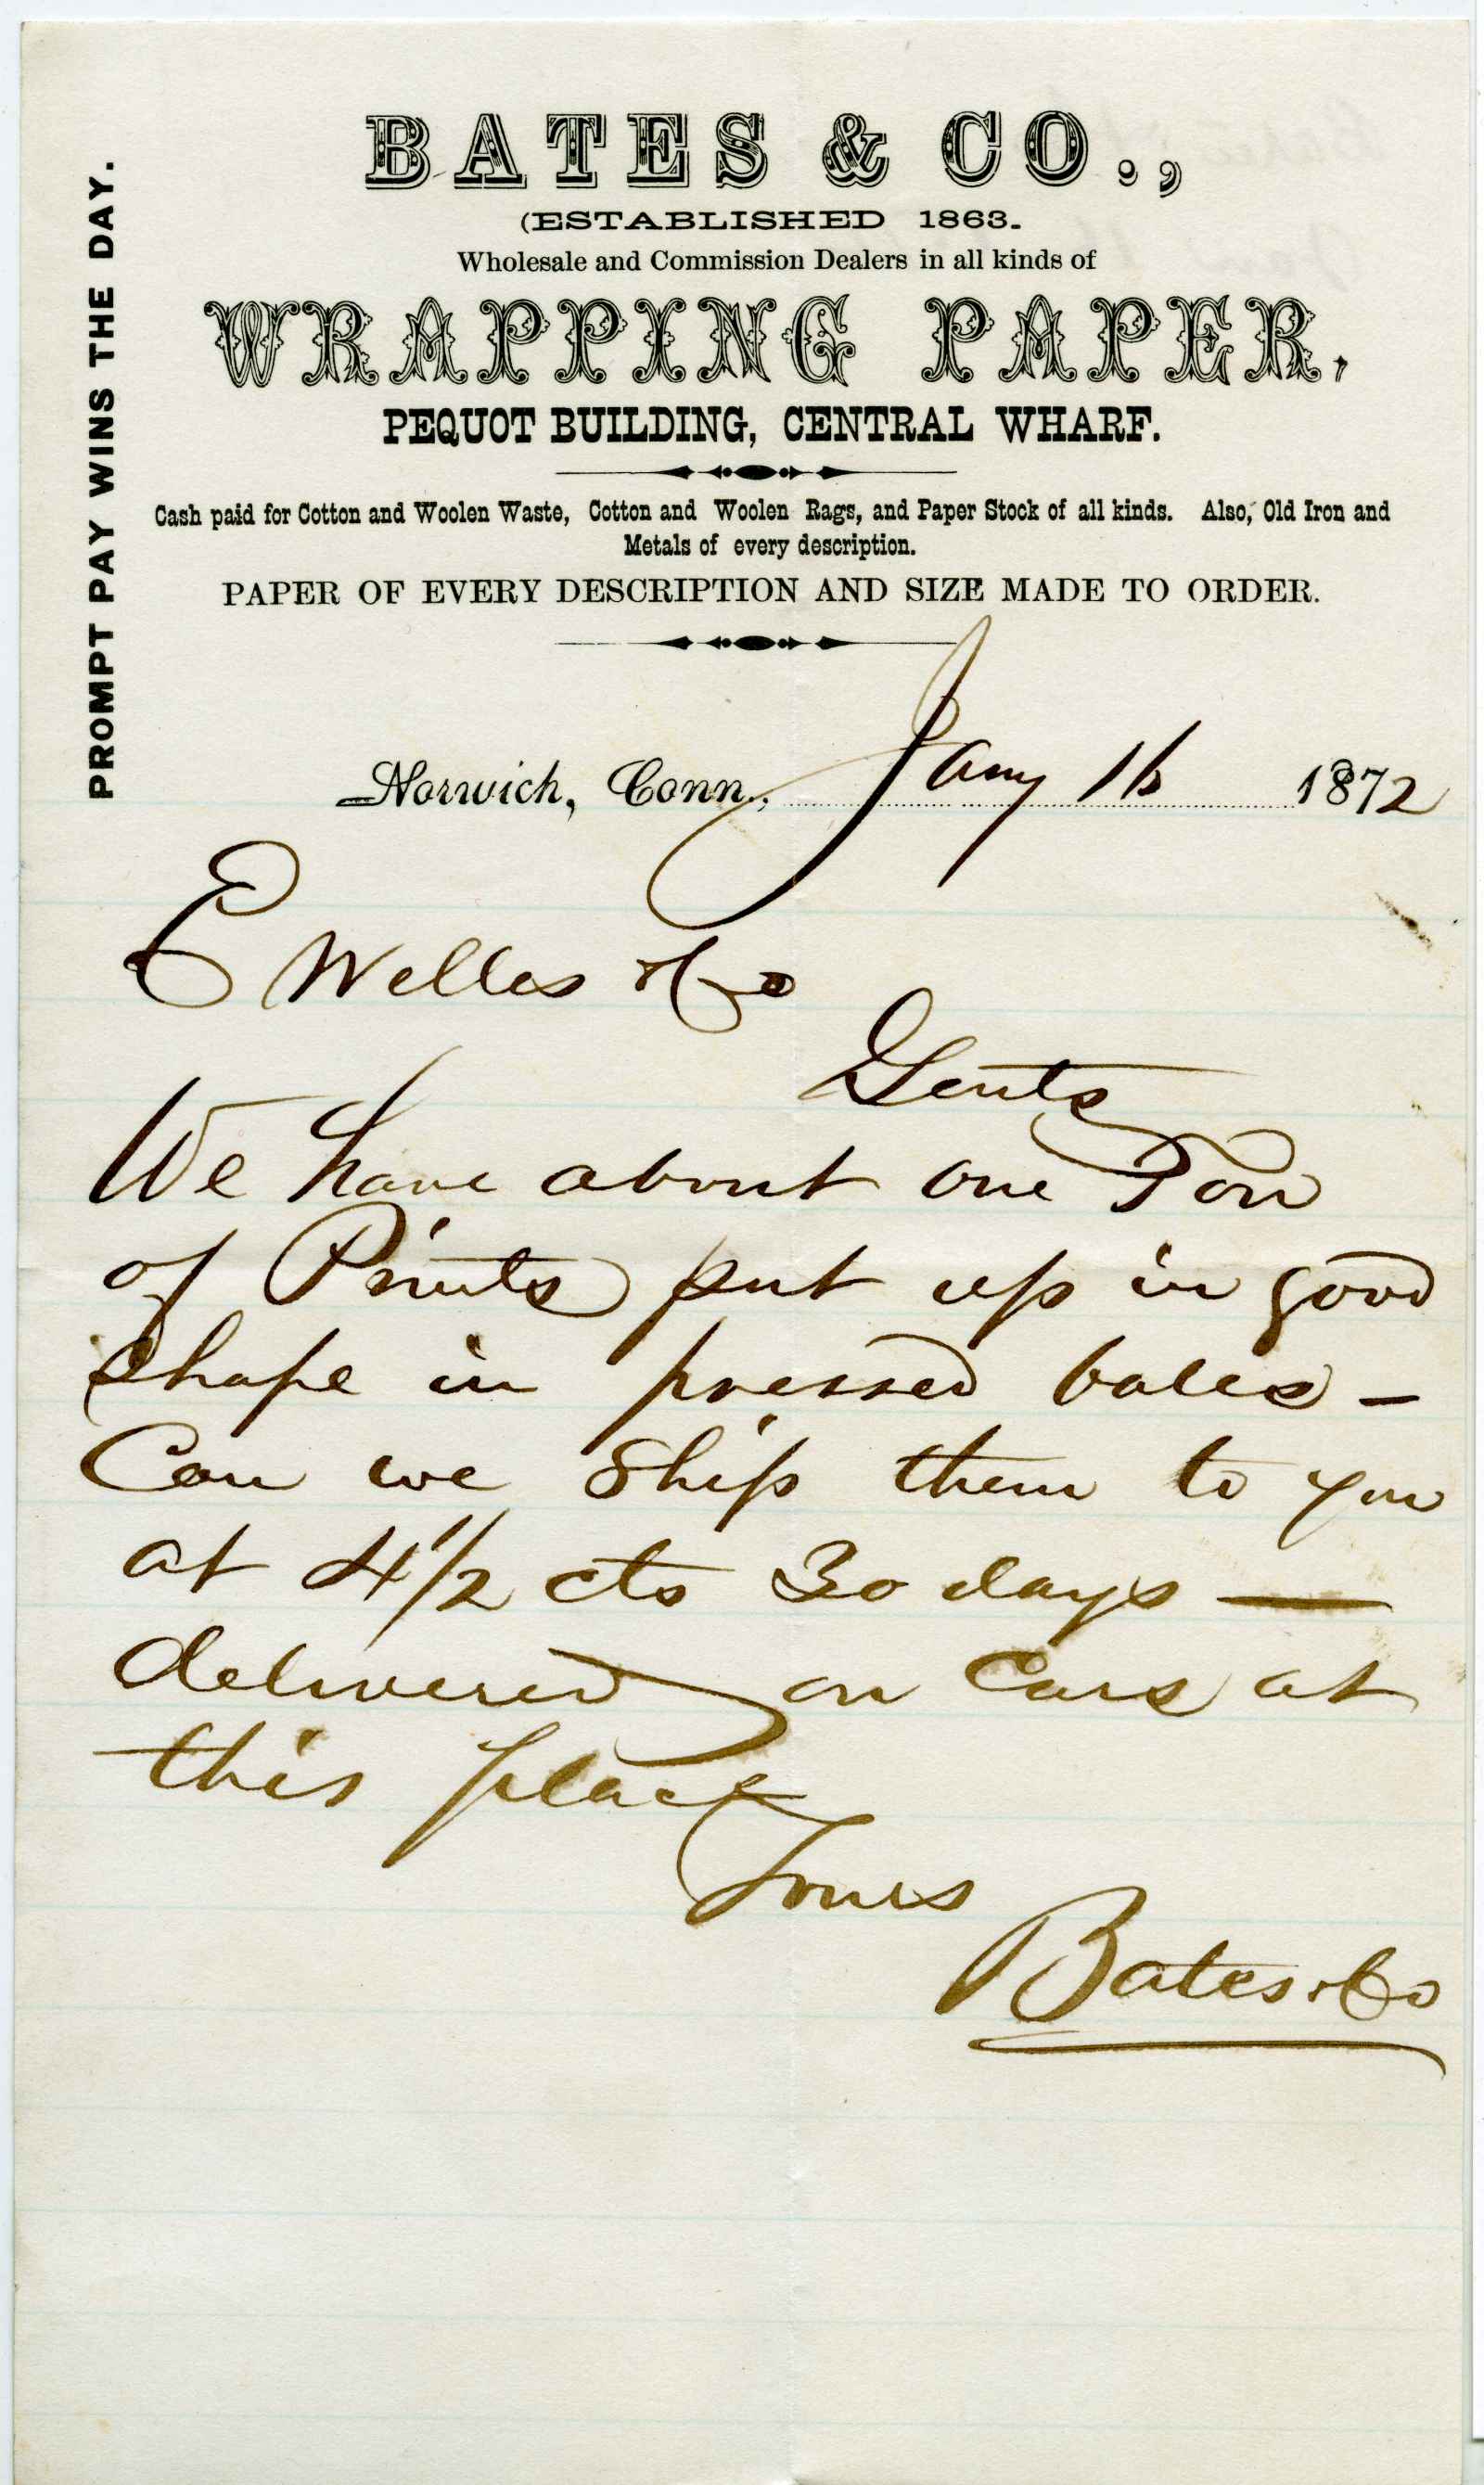 PROMPT PAY WINS THE DAY.
BATES & CO.,
(ESTABLISHED 1863.
Wholesale and Commission Dealers in all kinds of
WRAPPING PAPER,
PEQUOT BUILDING, CENTRAL WHARF.
Cash paid for Cotton and Woolen Waste, Cotton and Woolen Rags, and Paper Stock of all kinds. Also, Old Iron and
Metals of every description.
PAPER OF EVERY DESCRIPTION AND SIZE MADE TO ORDER.
Norwich, Conn., Jany 16 1872
E Welles & Co
Gents
We have about one Ton
of Prints put up in good
shape in pressed bales -
Can we ship them to you
at 4 1/2 cts 30 days —
delivered on Cars at
this place
Yours
Bates & Co